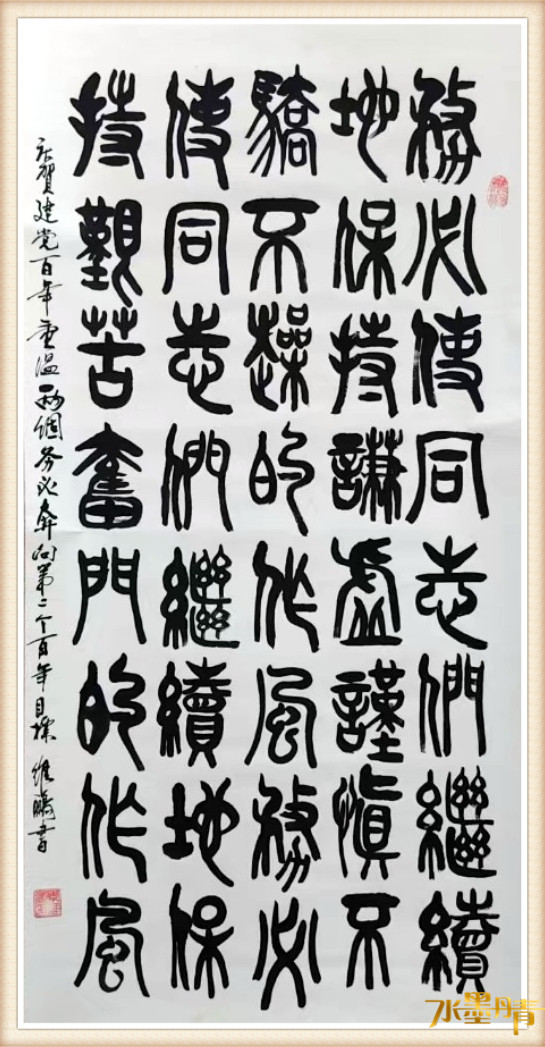 務必使同志們繼續
地保持謙虛謹慎不
驕不趮的作風務必
使同志們繼續地保
持艱苦奮鬥的作風
庆贺建党百年重温两個务必奔向第二个百年目标 維書
水墨丹青